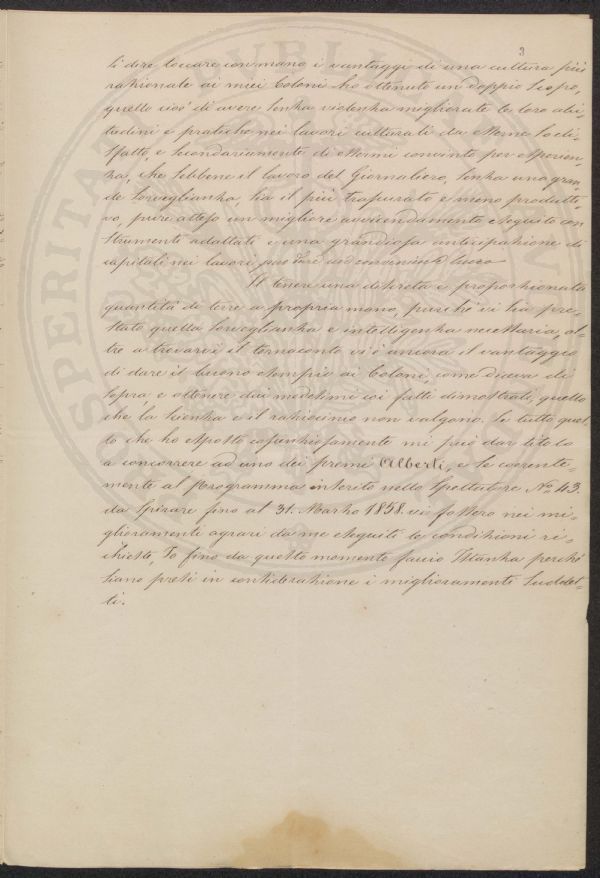 3
si dire toccare con mano i vantaggi di una cultura più
razionale ai miei Coloni ho ottenuto un doppio scopo,
quello cioè di avere senza violenza migliorate le loro abi-
tudini e pratiche nei lavori culturali da esserne sodis-
sfatto, e secondariamente di essermi convinto per esperien-
za, che sebbene il lavoro del Giornaliero, senza una gran-
de sorveglianza sia il più trapurato e meno produtti-
vo, pure atteso un migliore avvicendamento eseguito con
strumenti adattati e una grandiosa anticipazione di
capitali nei lavori, può dare un conveniente lucro
Il tenere una discreta e proporzionata
quantità di terre a propria mano, purchè vi sia pre-
stata quella sorveglianza e intelligenza necessaria, ol-
tre a trovarvi il tornaconto vi è ancora il vantaggio
di dare il buono esempio ai Coloni, come diceva di
sopra, e ottenere dai medesimi coi fatti dimostrati, quello
che la scienza e il raziocinio non valgono. Se tutto quel-
lo che ho esposto coscienziosamente mi può dar titolo
a concorrere ad uno dei premi Alberti, e se coerente-
mente al Programma inserito nello Spettatore No. 43.
da spirare fino al 31. Marzo 1858. vi fossero nei mi-
glioramenti agrari da me eseguiti le condizioni ri-
chieste, Io fino da questo momento faccio istanza perchè
siano presi in considerazione i miglioramenti suddet-
ti.
PROSPERITATI PVBLI